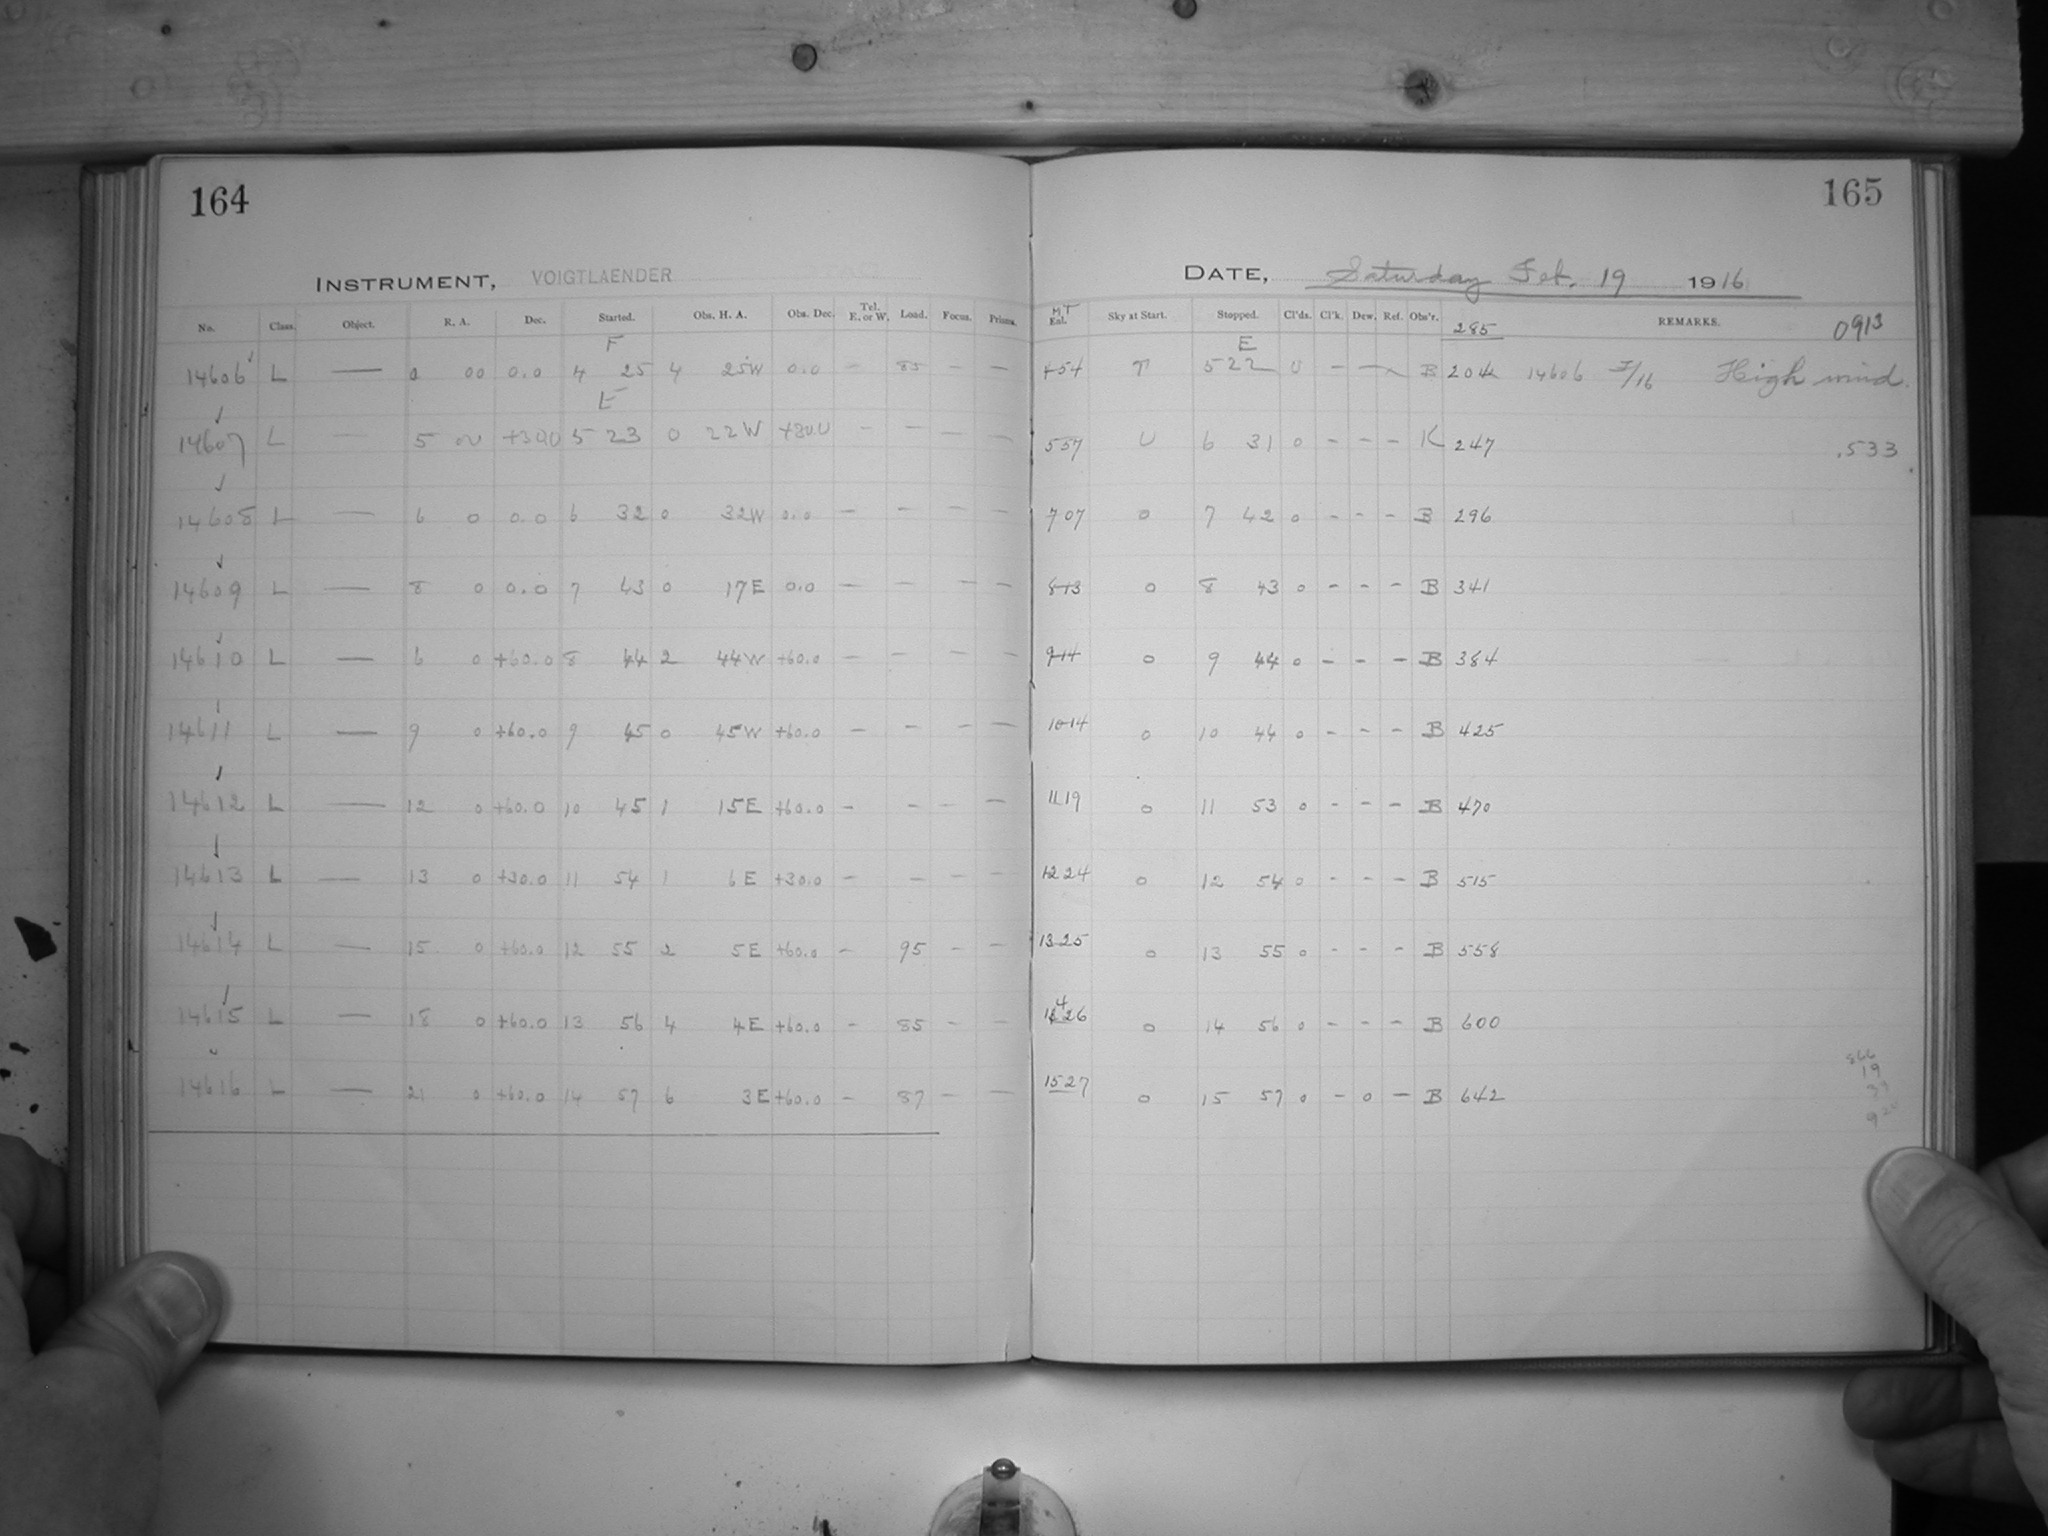 164
165
INSTRUMENT, VOIGTLAENDER
DATE, Saturday Feb. 19 1916
No. Class. Object. R. A. Dec. Started. Obs. H. A. Obs. Dec. Tel. E. or W. Load. Focus. Prisms. M T Enl. Sky at Start. Stopped. Cl'ds. Cl'k. Dew. Ref. Obs'r. 285 REMARKS. 0913
F E
14606 L — 0 00 0.0 4 25 4 25W 0.0 — 85 — — 454 5 22 0 — — B 204 14606 High wind.
E
14607 L — 5 00 +30.0 5 23 0 22W +30.0 — — — — 557 0 6 31 0 - - - K 247 .533
14608 L — 6 0 0.0 6 32 0 32W 0.0 — — — — 707 0 7 42 0 - - - B 296
14609 L — 8 0 0.0 7 43 0 17E 0.0 — — — — 813 0 8 43 0 - - - B 341
14610 L — 6 0 +60.0 8 44 2 44W +60.0 — — — — 914 0 9 44 0 - - - B 384
14611 L — 9 0 +60.0 9 45 0 45W +60.0 — — — — 1014 0 10 44 0 - - - B 425
14612 L — 12 0 +60.0 10 45 1 15E +60.0 — — — — 1119 0 11 53 0 - - - B 470
14613 L — 13 0 +30.0 11 54 1 6E +30.0 — — — — 1224 0 12 54 0 - - - B 515
14614 L — 15 0 +60.0 12 55 2 5E +60.0 — 95 — — 1325 0 13 55 0 - - - B 558
14615 L — 18 0 +60.0 13 56 4 4E +60.0 — 85 — — 1426 0 14 56 0 - - - B 600
14616 L — 21 0 +60.0 14 57 6 3E +60.0 — 87 — — 1527 0 15 57 0 - 0 - B 642
19